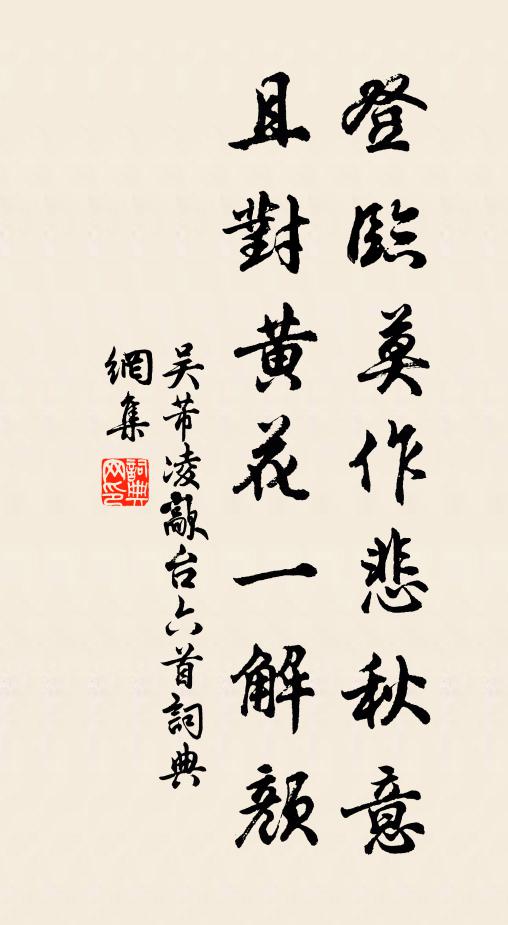 登臨莫作悲秋意
且對黃花一解顏
吳芾凌歊台六首詞典
網集
詞典
网印